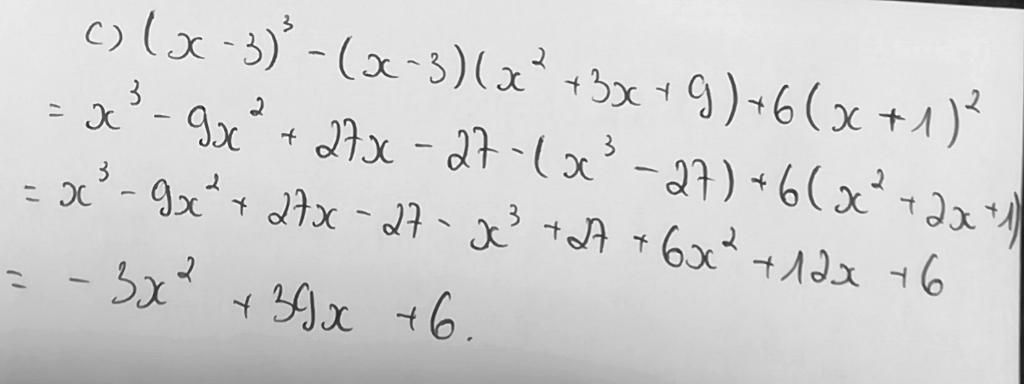 c) (x - 3)³ - (x - 3)(x² + 3x + 9) + 6(x + 1)²
= x³ - 9x² + 27x - 27 - (x³ - 27) + 6(x² + 2x + 1)
= x³ - 9x² + 27x - 27 - x³ + 27 + 6x² + 12x + 6
= - 3x² + 39x + 6.